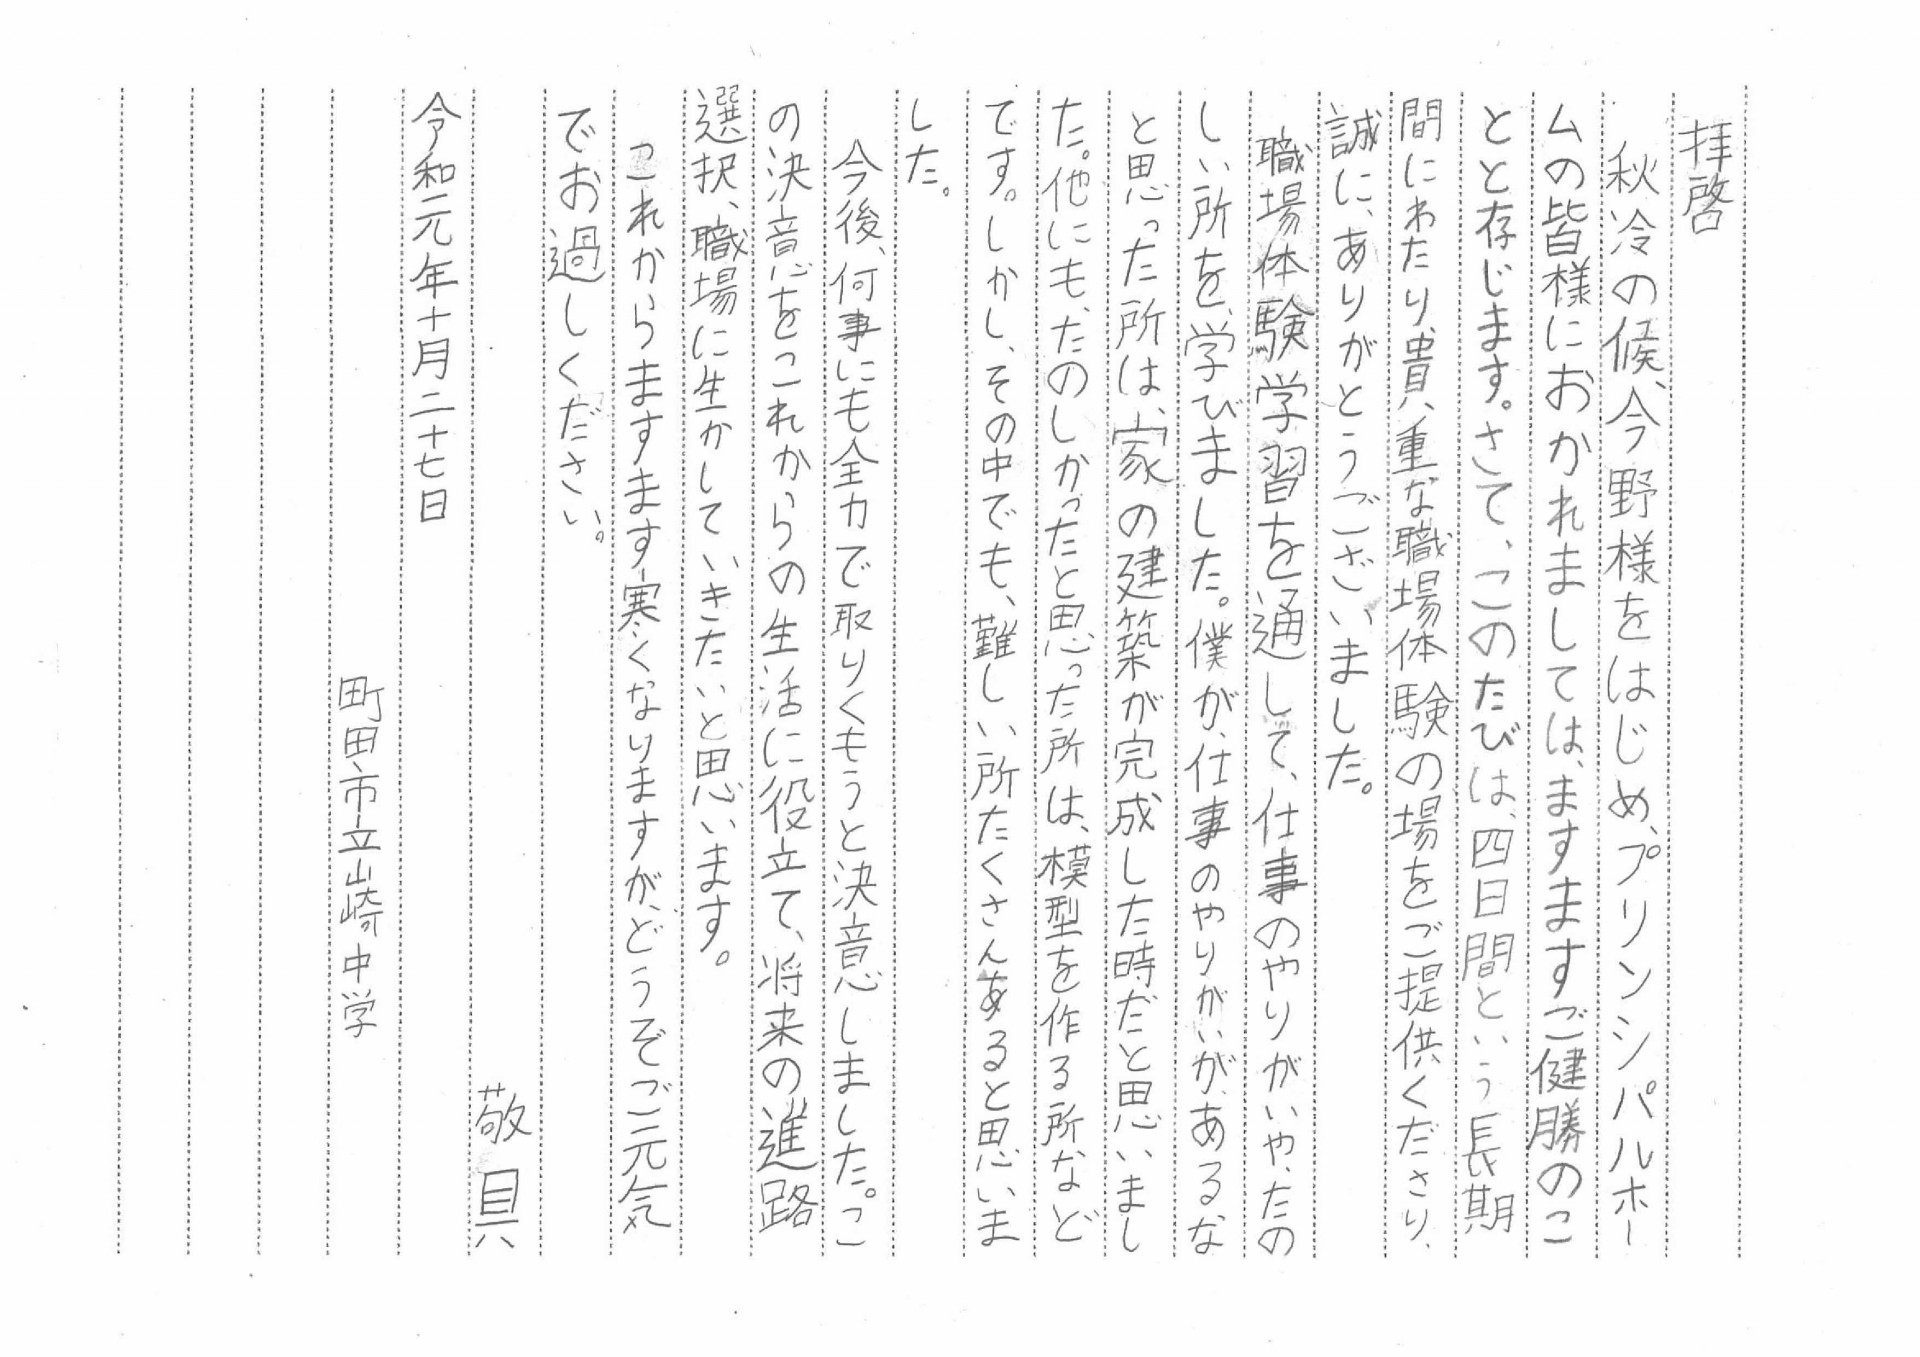 拝啓
秋冷の候、今野様をはじめ、プリンシパルホー
ムの皆様におかれましては、ますますご健勝のこ
とと存じます。さて、このたびは、四日間という長期
間にわたり、貴重な職場体験の場をご提供くださり、
誠に、ありがとうございました。
職場体験学習を通して、仕事のやりがいや、たの
しい所を、学びました。僕が、仕事のやりがいが、あるな
と思った所は、家の建築が完成した時だと思いまし
た。他にも、たのしかったと思った所は、模型を作る所など
です。しかし、その中でも、難しい所たくさんあると思いま
した。
今後、何事にも全力で取りくもうと決意しました。こ
の決意をこれからの生活に役立て、将来の進路
選択、職場に生かしていきたいと思います。
これからますます寒くなりますが、どうぞご元気
でお過しください。
敬具
令和元年十月二十七日
町田市立山崎中学